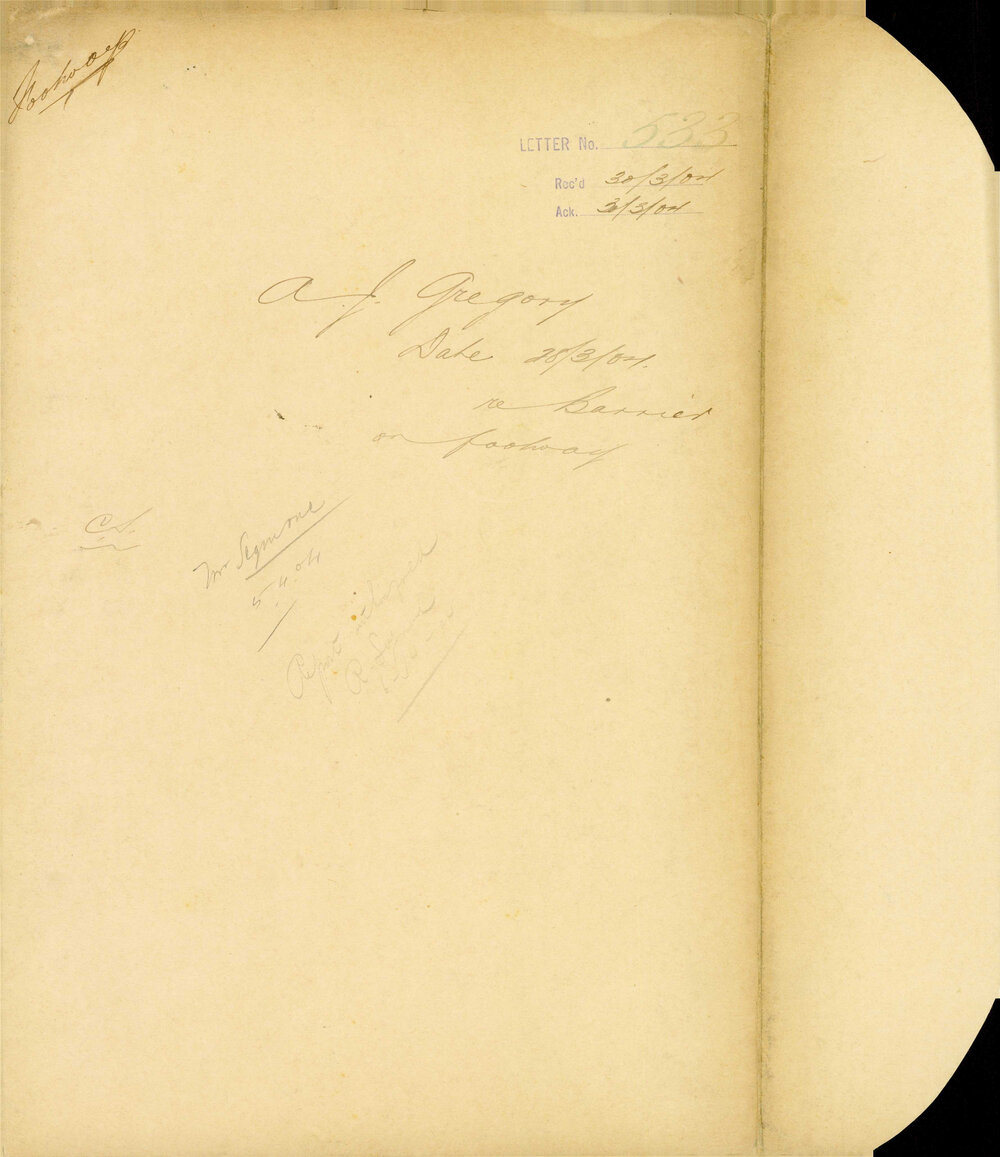 Footway
LETTER No. 533
Rec'd 30/3/04
Ack. 30/3/04
A. J. Gregory
Date 28/3/04.
re Barrier
on footway
C.S.
Mr Seymour
5.4.04
Report attached
R. Seymour